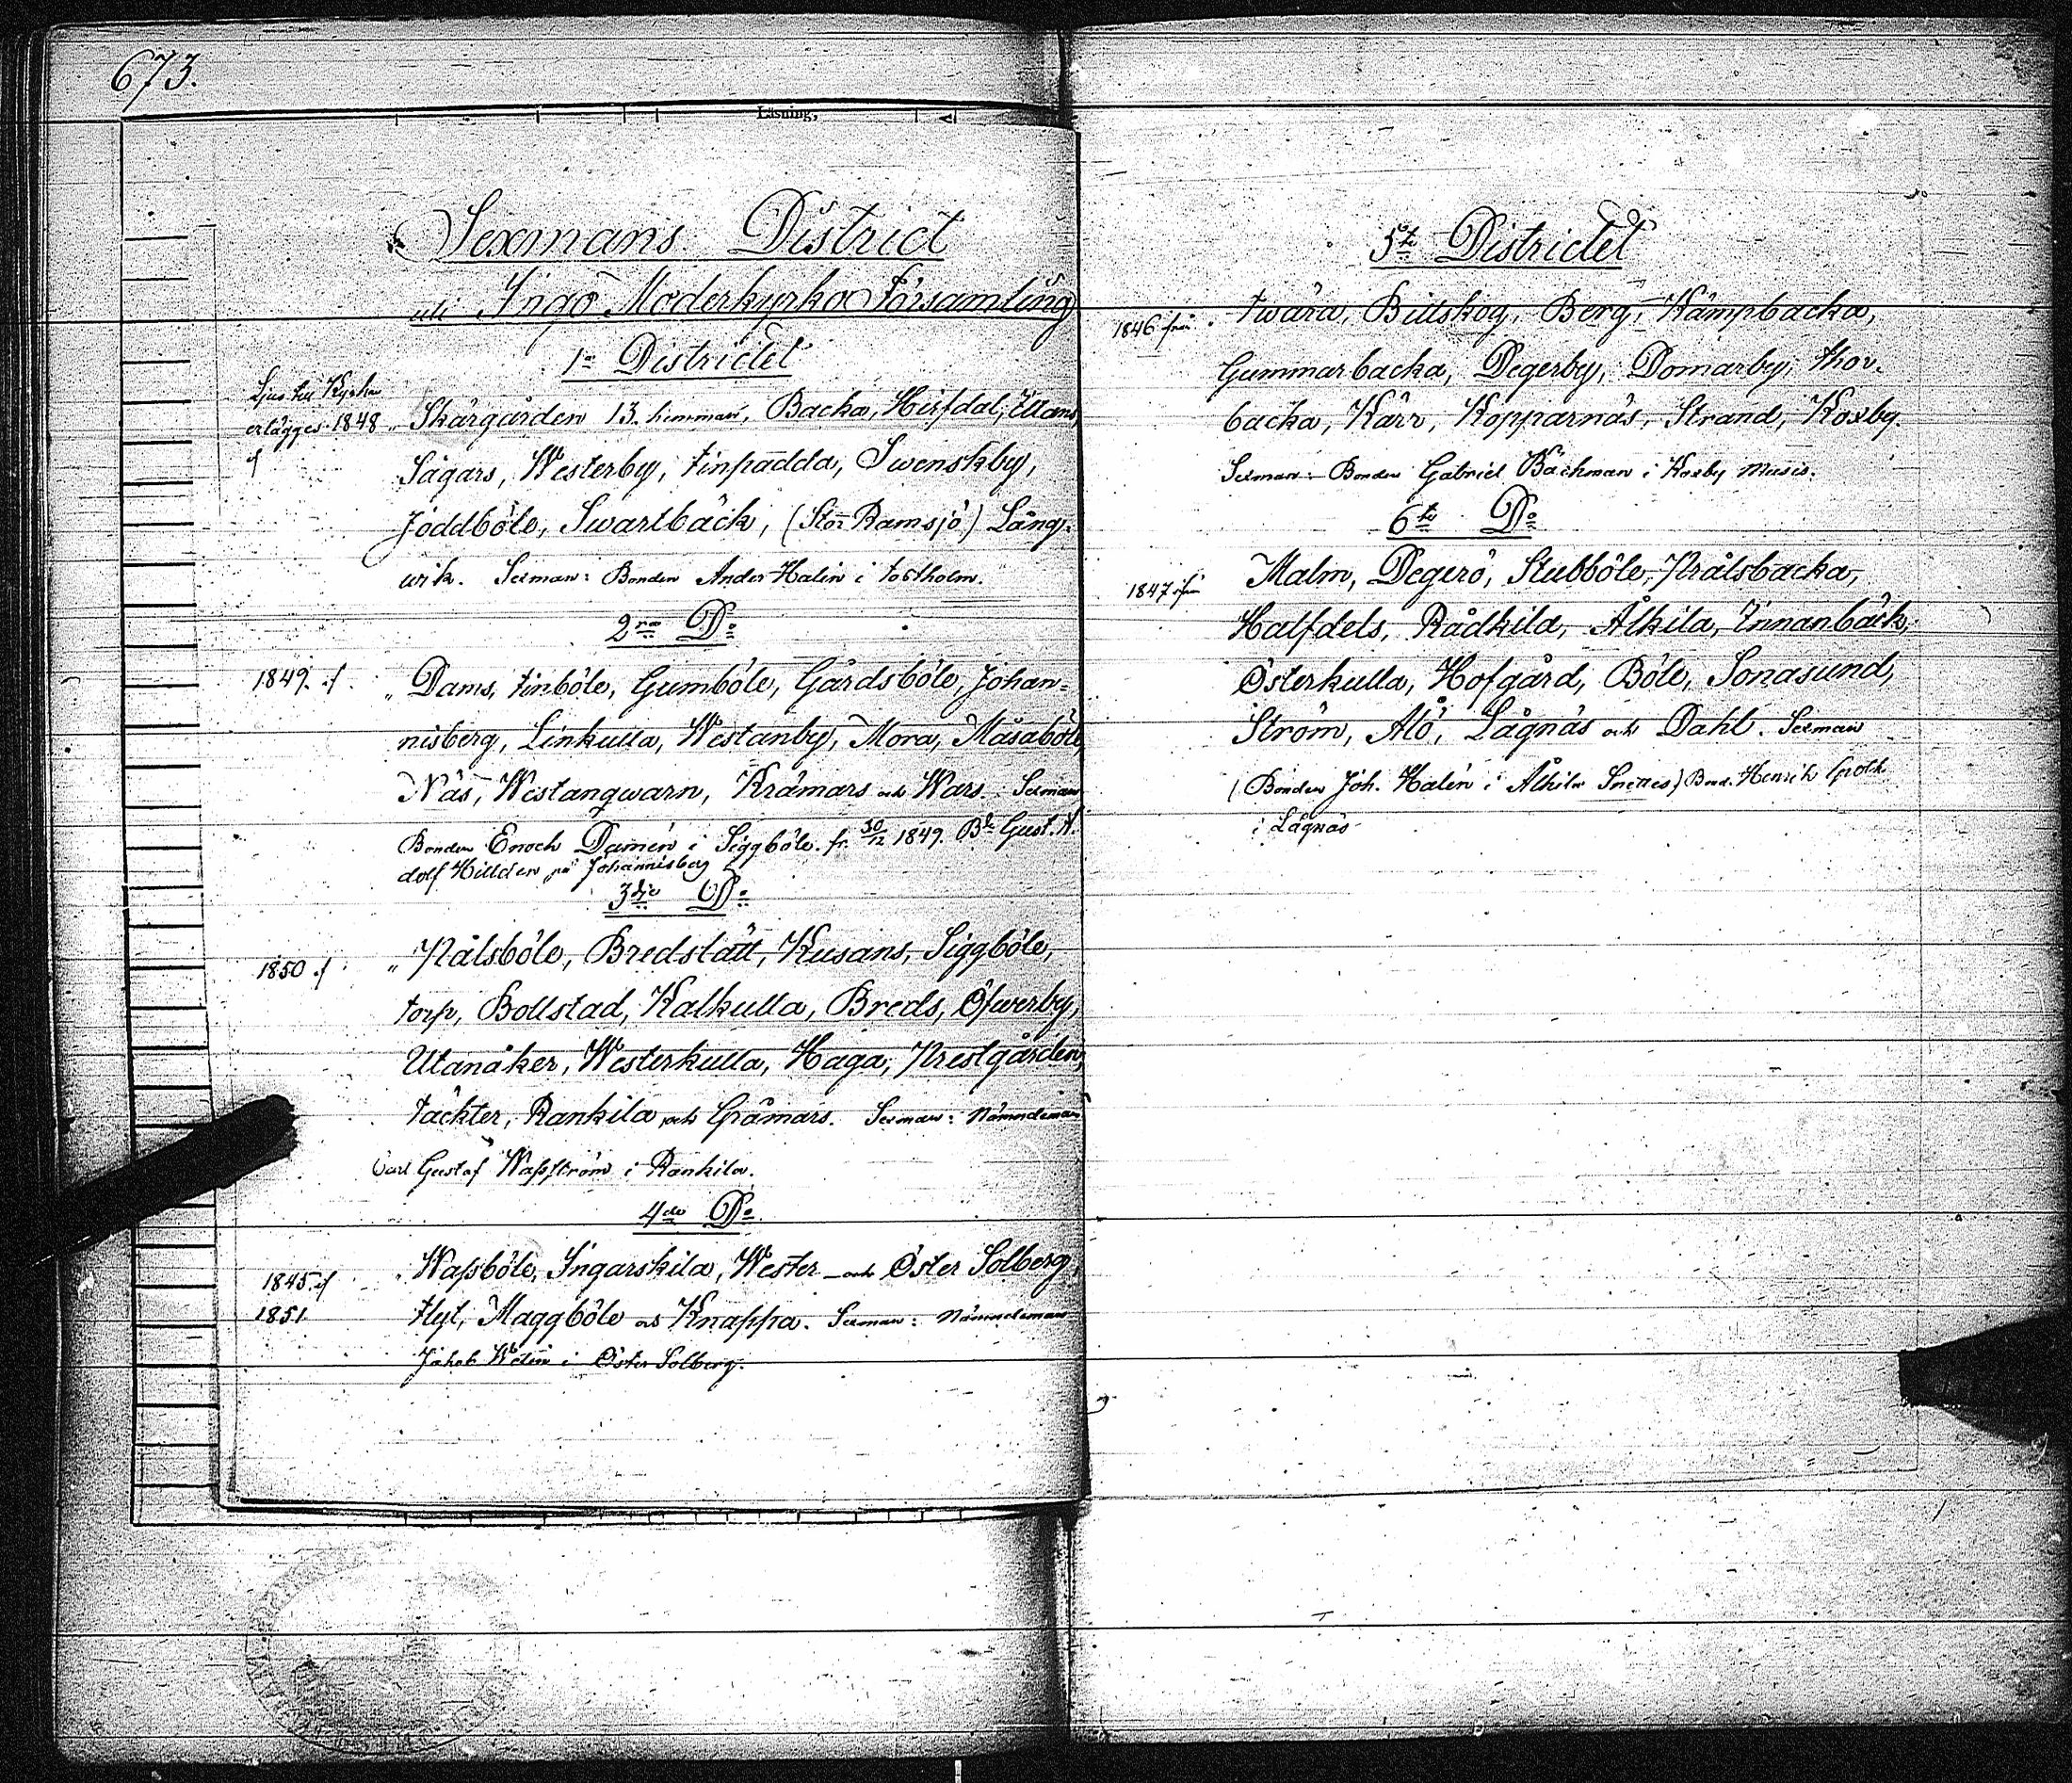 673.
Läsning,
Sexmans District
uti Ingo Moderkyrko Församling
1a Districtet
Ljus till Kyrkan
erlägges 1848 „ Skärgården 13. hemman, Backa, Hirfdal, Utans,
f Sågars, Westerby, Finpadda, Swenskby,
Joddböle, Swartbäck, (Stor Ramsjö) Lång-
wik. Sexman: Bonden Ander Halin i Tostholm.
2ra Do
1849. f. „ Dams, Finböle, Gumböle, Gårdsböle, Johan=
nisberg, Linkulla, Westanby, Mora, Måsaböle
Näs, Westanqwarn, Krämars och Wars. Sexman
Bonden Enoch Damén i Siggböle. fr. 30/12 1849. Bd Gust. A.
dolf Hilldén på Johannisberg
3dje Do
1850 f. „ Pålsböle, Bredslätt, Kusans, Siggböle,
Torp, Bollstad, Kalkulla, Breds, Öfwerby,
Utanåker, Westerkulla, Haga, Prestgården,
Täckter, Rankila och Gråmars. Sexman: Nämndeman
Carl Gustaf Waßström i Rankila.
4de Do
1845. f „ Waßböle, Ingarskila, Wester- och Öster Solberg,
1851 Flyt, Maggböle och Knappa. Sexman: Nämndeman
Jakob Welin i Öster Solberg.
5te Districtet
1846 från „ Twära, Billskog, Berg, Kämpbacka,
Gummarbacka, Degerby, Domarby, Thor-
backa, Kärr, Kopparnäs, Strand, Koxby.
Sexman: Bonden Gabriel Bäckman i Koxby Musis.
6te Do
1847 från Malm, Degerö, Stubböle, Prålsbacka,
Halfdels, Rådkila, Ålkila, Innanbäck,
Österkulla, Hofgård, Böle, Sonasund,
Ström, Alö, Lågnäs och Dahl. Sexman
(Bonden Joh. Halén i Ålkila Snettes) Bond. Henrik Groth
i Lågnäs